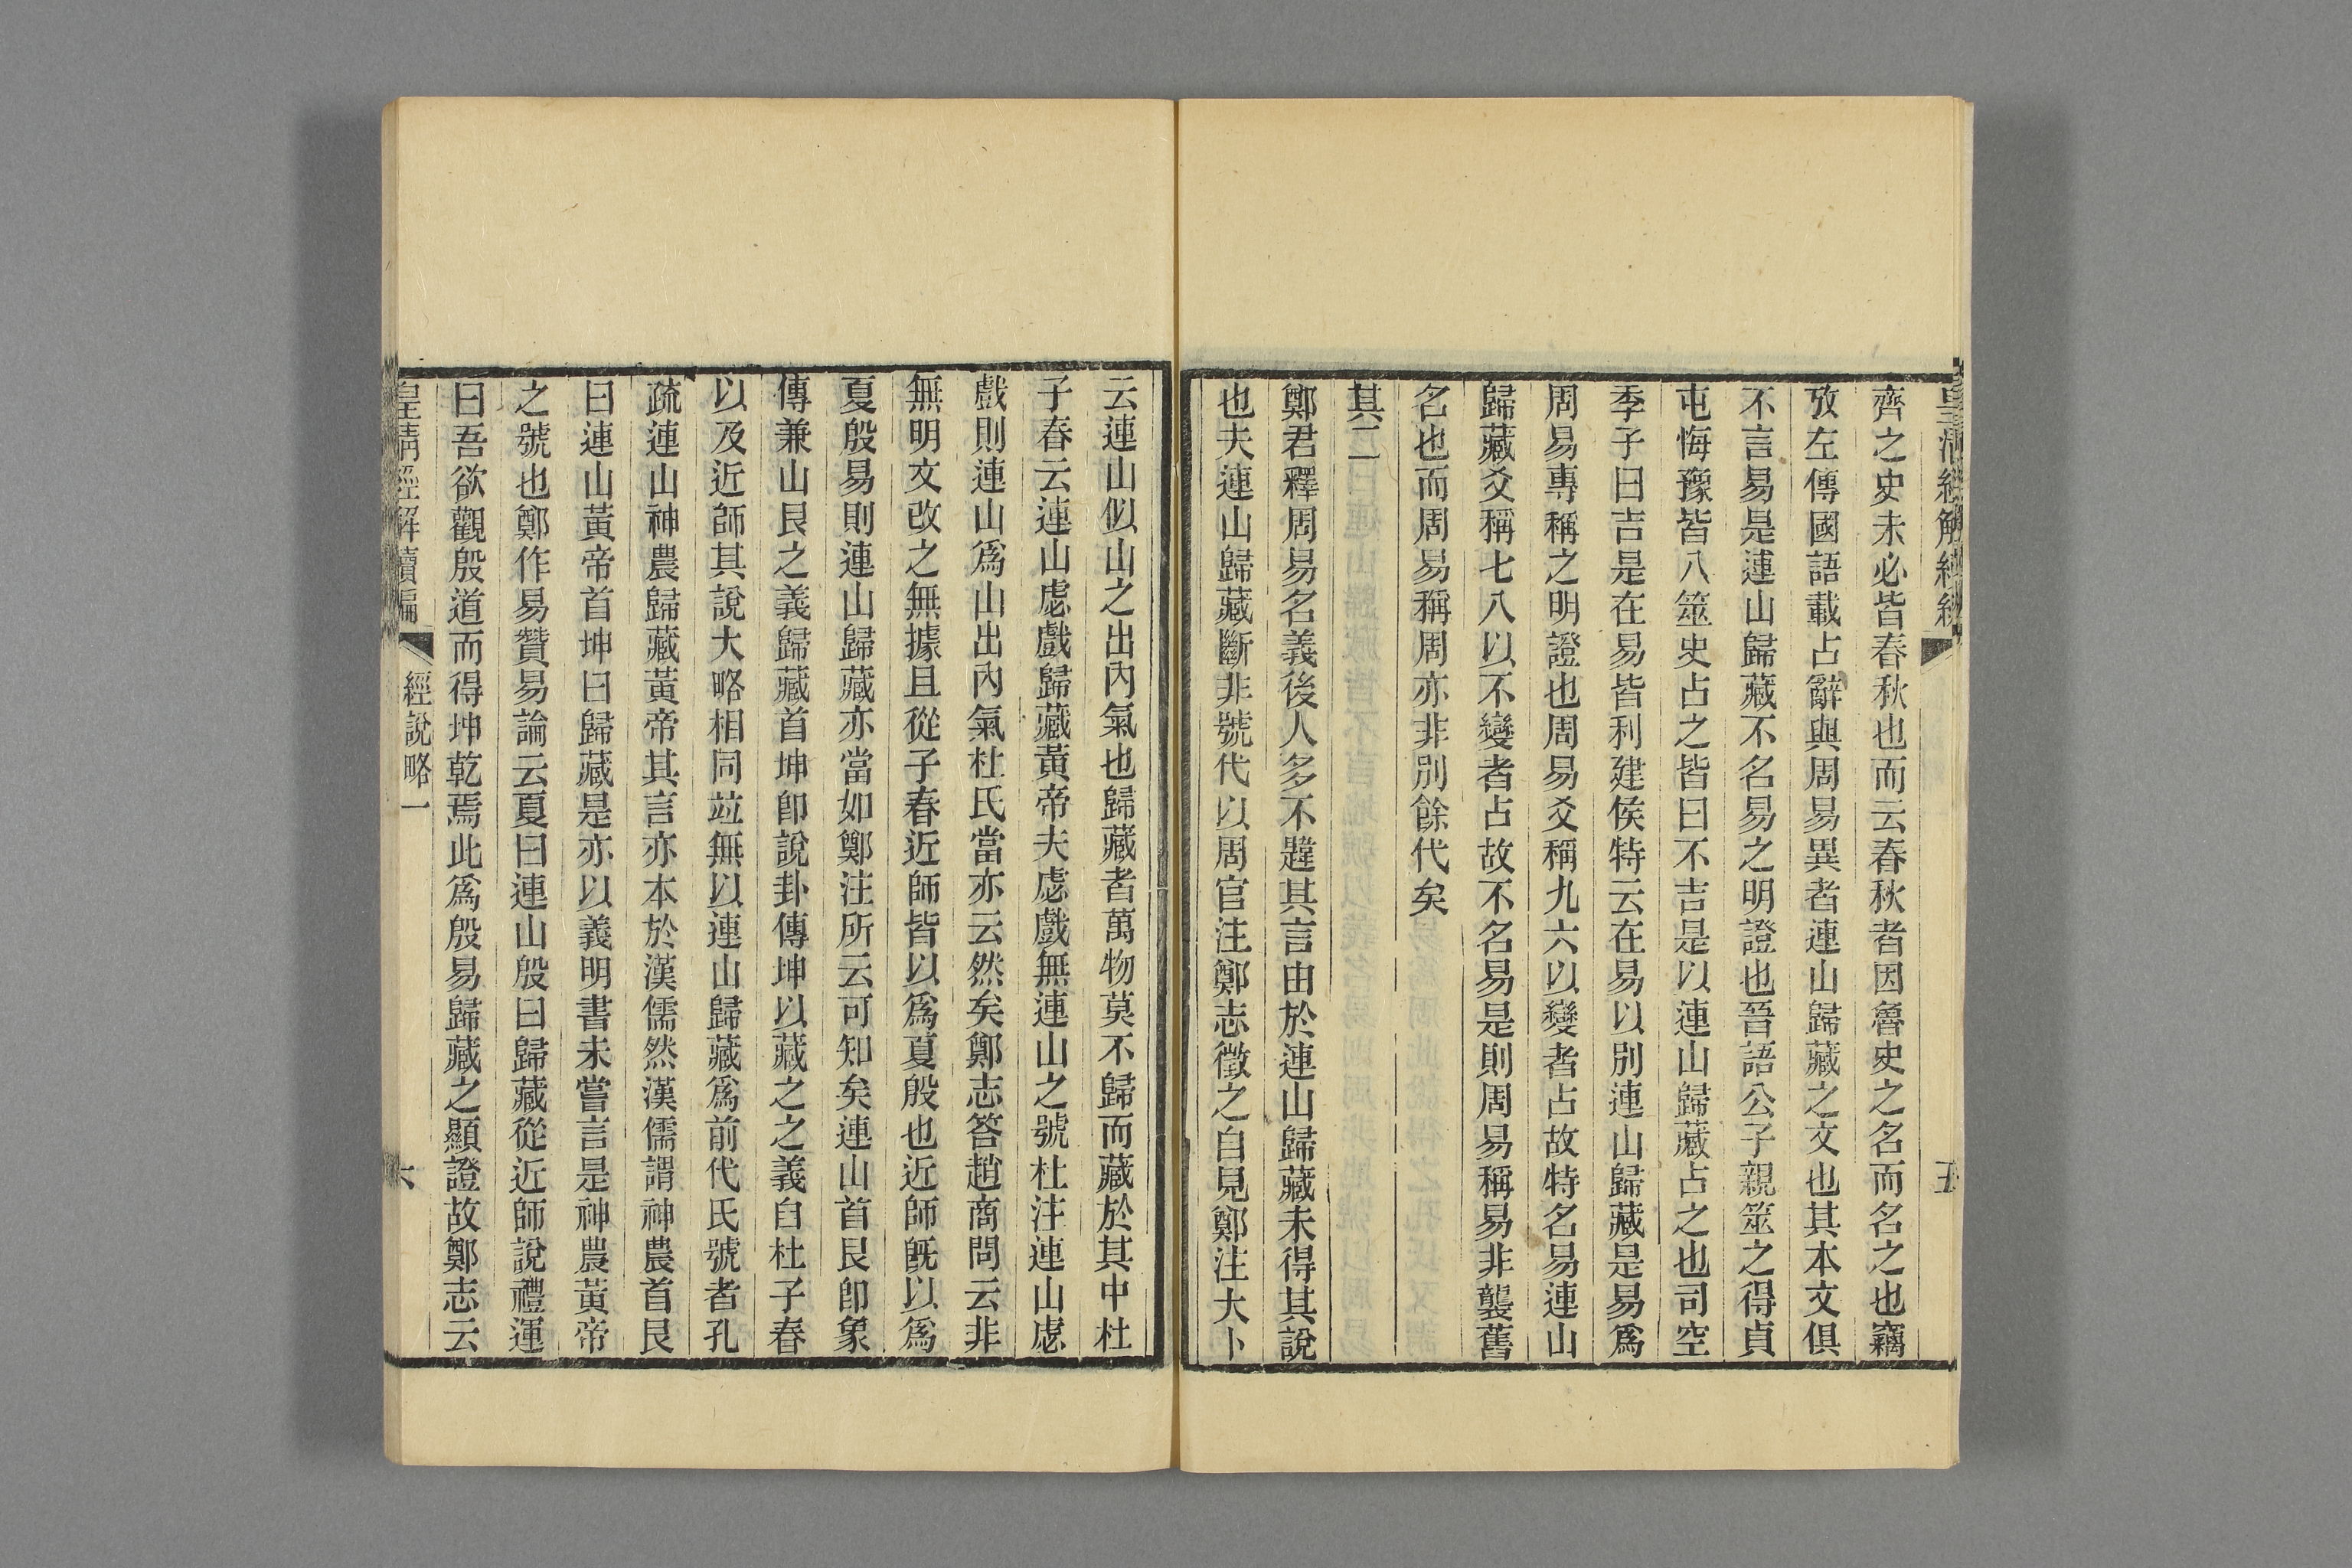 齊之史未必皆春秋也而云春秋者因魯史之名而名之也竊
攷左傳國語載占辭與周易異者連山歸藏之文也其本文俱
不言易是連山歸藏不名易之明證也晉語公子親筮之得貞
屯悔豫皆八筮史占之皆曰不吉是以連山歸藏占之也司空
季子曰吉是在易皆利建侯特云在易以別連山歸藏是易爲
周易專稱之明證也周易爻稱九六以變者占故特名易連山
歸藏爻稱七八以不變者占故不名易是則周易稱易非襲舊
名也而周易稱周亦非別餘代矣
其二
鄭君釋周易名義後人多不韙其言由於連山歸藏未得其說
也夫連山歸藏斷非號代以周官注鄭志徵之自見鄭注大卜
云連山似山之出內氣也歸藏者萬物莫不歸而藏於其中杜
子春云連山虙戲歸藏黃帝夫虙戲無連山之號杜注連山虙
戲則連山爲山出內氣杜氏當亦云然矣鄭志答趙商問云非
無明文改之無據且從子春近師皆以爲夏殷也近師旣以爲
夏殷易則連山歸藏亦當如鄭注所云可知矣連山首艮卽象
傳兼山艮之義歸藏首坤卽說卦傳坤以藏之之義自杜子春
以及近師其說大略相同竝無以連山歸藏爲前代氏號者孔
疏連山神農歸藏黃帝其言亦本於漢儒然漢儒謂神農首艮
曰連山黃帝首坤曰歸藏是亦以義明書未嘗言是神農黃帝
之號也鄭作易贊易論云夏曰連山殷曰歸藏從近師說禮運
曰吾欲觀殷道而得坤乾焉此爲殷易歸藏之顯證故鄭志云
皇清經解續編
經說略一
六